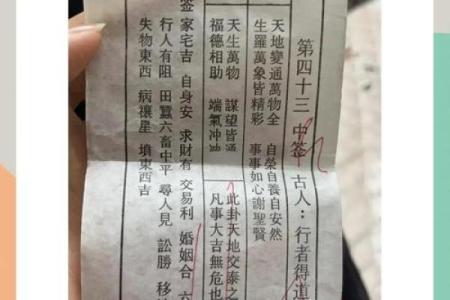 第四十三 中签 古人：行者得道
天地變通萬物全 自榮自養自安然
生羅萬象皆精彩 事事如心謝聖賢
天生萬物 謀望皆通
福德相助 端氣冲
此卦天地交泰之
凡事大吉無危也
签 家宅吉 自身安 求財有 交易利 婚姻合 六
行人有阻 田蠶六畜中平 尋人見 訟勝 移
失物東西 病禳星 墳東西吉